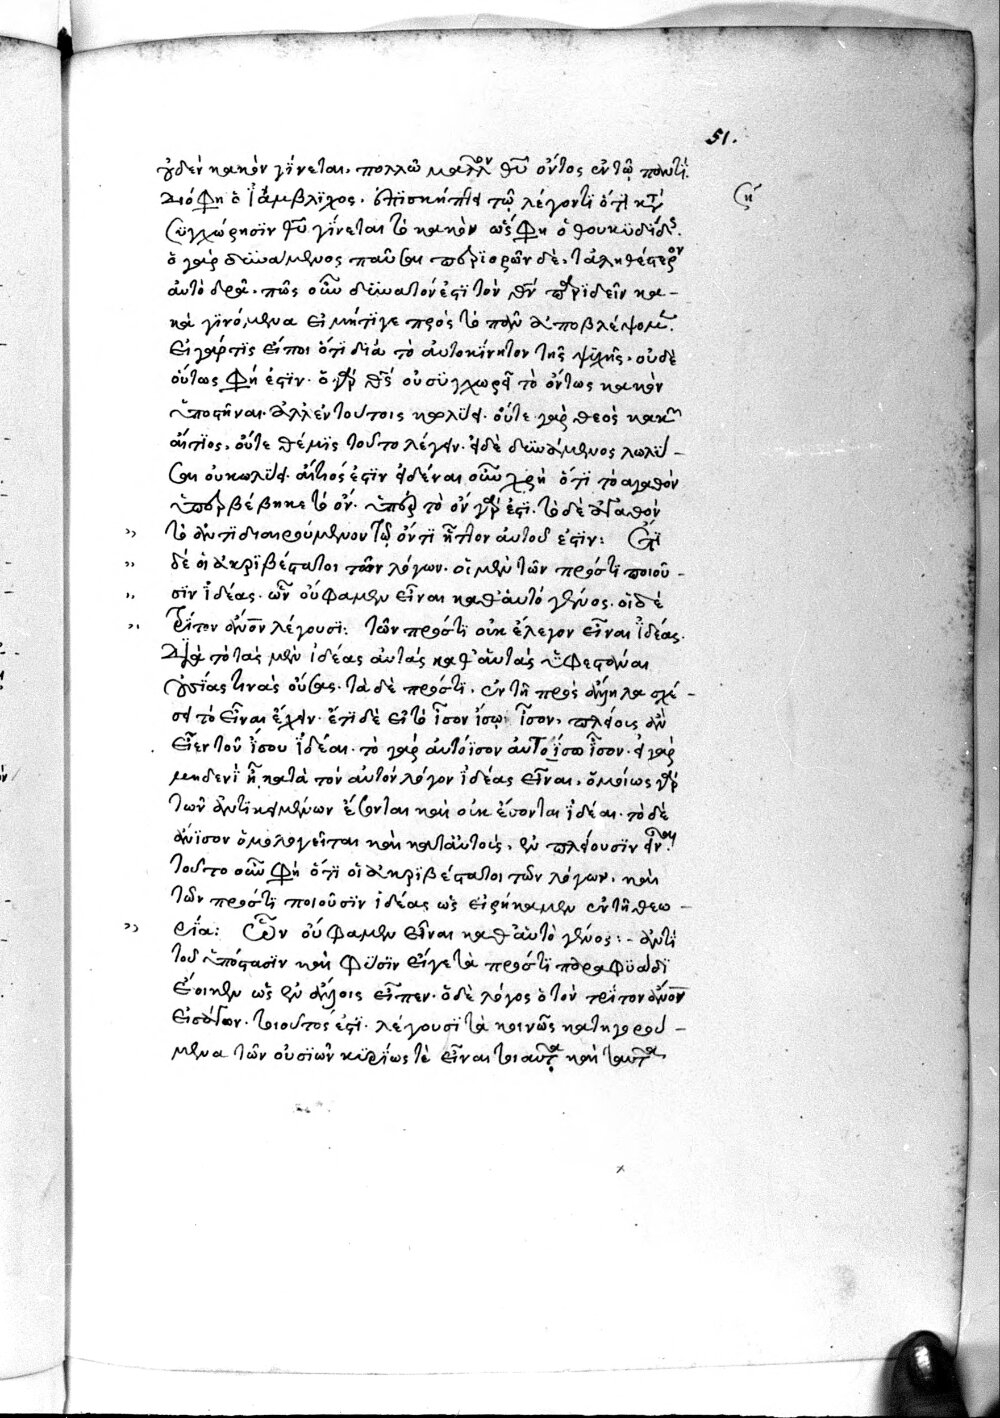 51.
οὐδὲν κακὸν γίνεται. πολλῷ μᾶλλον θεοῦ ὄντος ἐν τῷ παντί.
διό φη ὁ Ἰάμβλιχος. ἐπισκήπτει τῷ λέγοντι ὅτι κατὰ
ση
συγχώρησιν θεοῦ γίνεται τὸ κακὸν ὥς φη ὁ θουκυδίδης.
ὁ γὰρ δυνάμενος παῦσαι περιορῶν δὲ, τἀληθέστερον
αὐτὸ δρᾷ. πῶς οὖν δυνατόν ἐστι τὸν θν περιιδεῖν κα-
κὰ γινόμενα εἰ μήτιγε πρὸς τὸ πᾶν ἀποβλέψομεν.
εἰ γάρ τις εἴποι ὅτι διὰ τὸ αὐτοκίνητον τῆς ψυχῆς. οὐδὲ
οὕτως φή ἐστιν. ὁ γὰρ θς οὐ συγχωρεῖ τὸ ὄντως κακὸν
ὑποστῆναι. ἀλλ' ἐν τούτοις κωλύει. οὔτε γὰρ θεὸς κακοῦ
αἴτιος, οὔτε θέμις τοῦτο λέγειν. εἰ δὲ δυνάμενος κωλύ-
σαι οὐ κωλύει. αἴτιός ἐστιν εἰδέναι οὖν χρὴ ὅτι τὸ ἀγαθὸν
ὑπερβέβηκε τὸ ὄν. ὑπὲρ τὸ ὂν γάρ ἐστι. τὸ δὲ ἀγαθὸν
τὸ ἀντιδιαιρούμενον τῷ ὄντι ἧττον αὐτοῦ ἐστιν: Ἔτι
δέ οἱ ἀκριβέστατοι τῶν λόγων. οἱ μὲν τῶν πρός τι ποιοῦ-
σιν ἰδέας. ὧν οὔ φαμεν εἶναι καθ' αὑτὸ γένος. οἱ δὲ
τρίτον ἄνον λέγουσι: τῶν πρός τι οὐκ ἔλεγον εἶναι ἰδέας.
διὰ τὸ τὰς μὲν ἰδέας αὐτὰς καθ' αὑτὰς ὑφεστάναι
οὐσίας τινὰς οὔσας. τὰ δὲ πρός τι. ἐν τῇ πρὸς ἄλληλα σχέ-
σει τὸ εἶναι ἔχειν. ἔτι δὲ εἰ τὸ ἴσον ἴσῳ ἴσον. πλείους ἂν
εἶεν τοῦ ἴσου ἰδέαι. τὸ γὰρ αὐτόϊσον αὐτοΐσῳ ἴσον. εἰ γὰρ
μηδενὶ ᾖ κατὰ τὸν αὐτὸν λόγον ἰδέας εἶναι. ὁμοίως γὰρ
τῶν ἀντικειμένων ἔσονται καὶ οὐκ ἔσονται ἰδέαι. τὸ δὲ
ἄνισον ὁμολογεῖται καὶ κατ' αὐτοὺς. ἐν πλείουσιν εἶναι.
τοῦτο οὖν φη ὅτι οἱ ἀκριβέστατοι τῶν λόγων. καὶ
τῶν πρός τι ποιοῦσιν ἰδέας ὡς εἰρήκαμεν ἐν τῇ θεω-
ρίᾳ: Ὧν οὔ φαμεν εἶναι καθ' αὑτὸ γένος:- ἀντὶ
τοῦ ὑπόστασιν καὶ φύσιν εἴγε τὰ πρός τι παραφυάδι
ἔοικεν ὡς ἐν ἄλλοις εἶπεν. ὁ δὲ λόγος ὁ τὸν τρίτον ἄνον
εἰσάγων. τοιοῦτός ἐστι. λέγουσι τὰ κοινῶς κατηγορού-
μενα τῶν οὐσιῶν κυρίως τὲ εἶναι τοιαῦτα καὶ ταῦτα